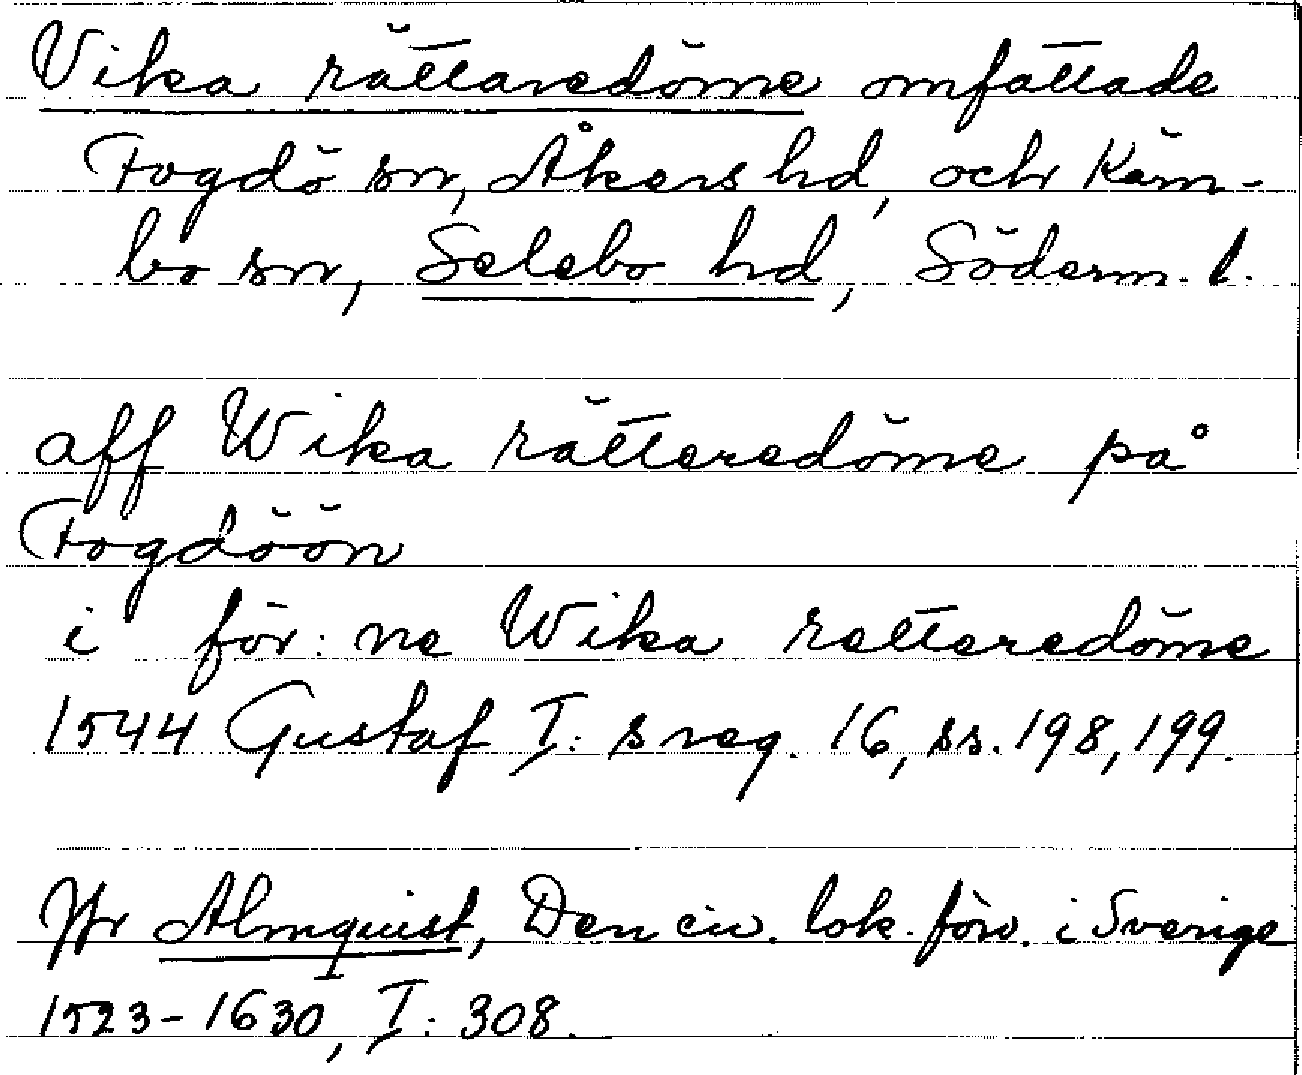 Vika rättaredöme omfattade
Fogdö sn, Åkers hd, och Kärn-
bo sn, Selebo hd, Söderm. l.
aff Wika rätteredöme på
Fogdöön
i för: ne Wika retteredöme
1544 Gustaf I: s reg. 16, ss. 198, 199.
Jfr Almquist, Den civ. lok. förv. i Sverige
1523-1630, I: 308.